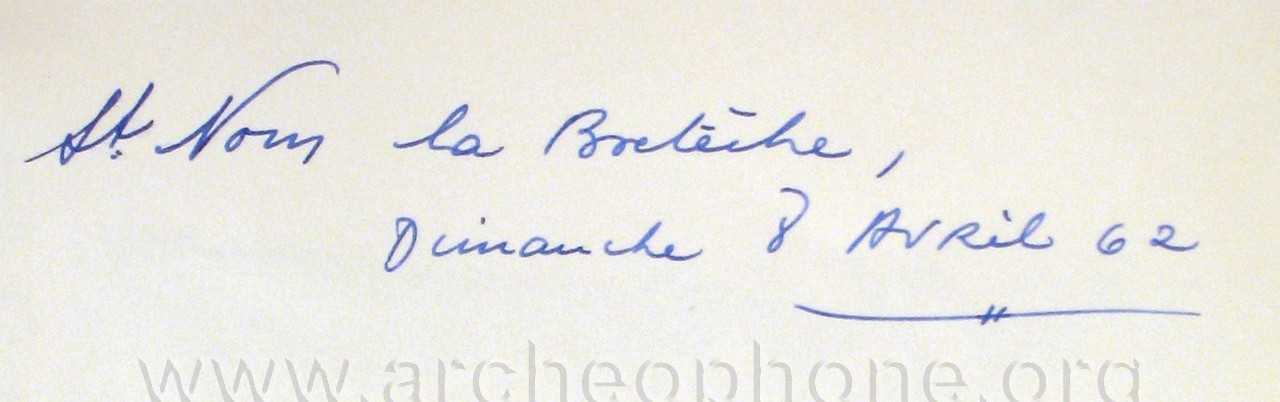 St. Nom la Bretêche,
Dimanche 8 Avril 62
www.archeophone.org